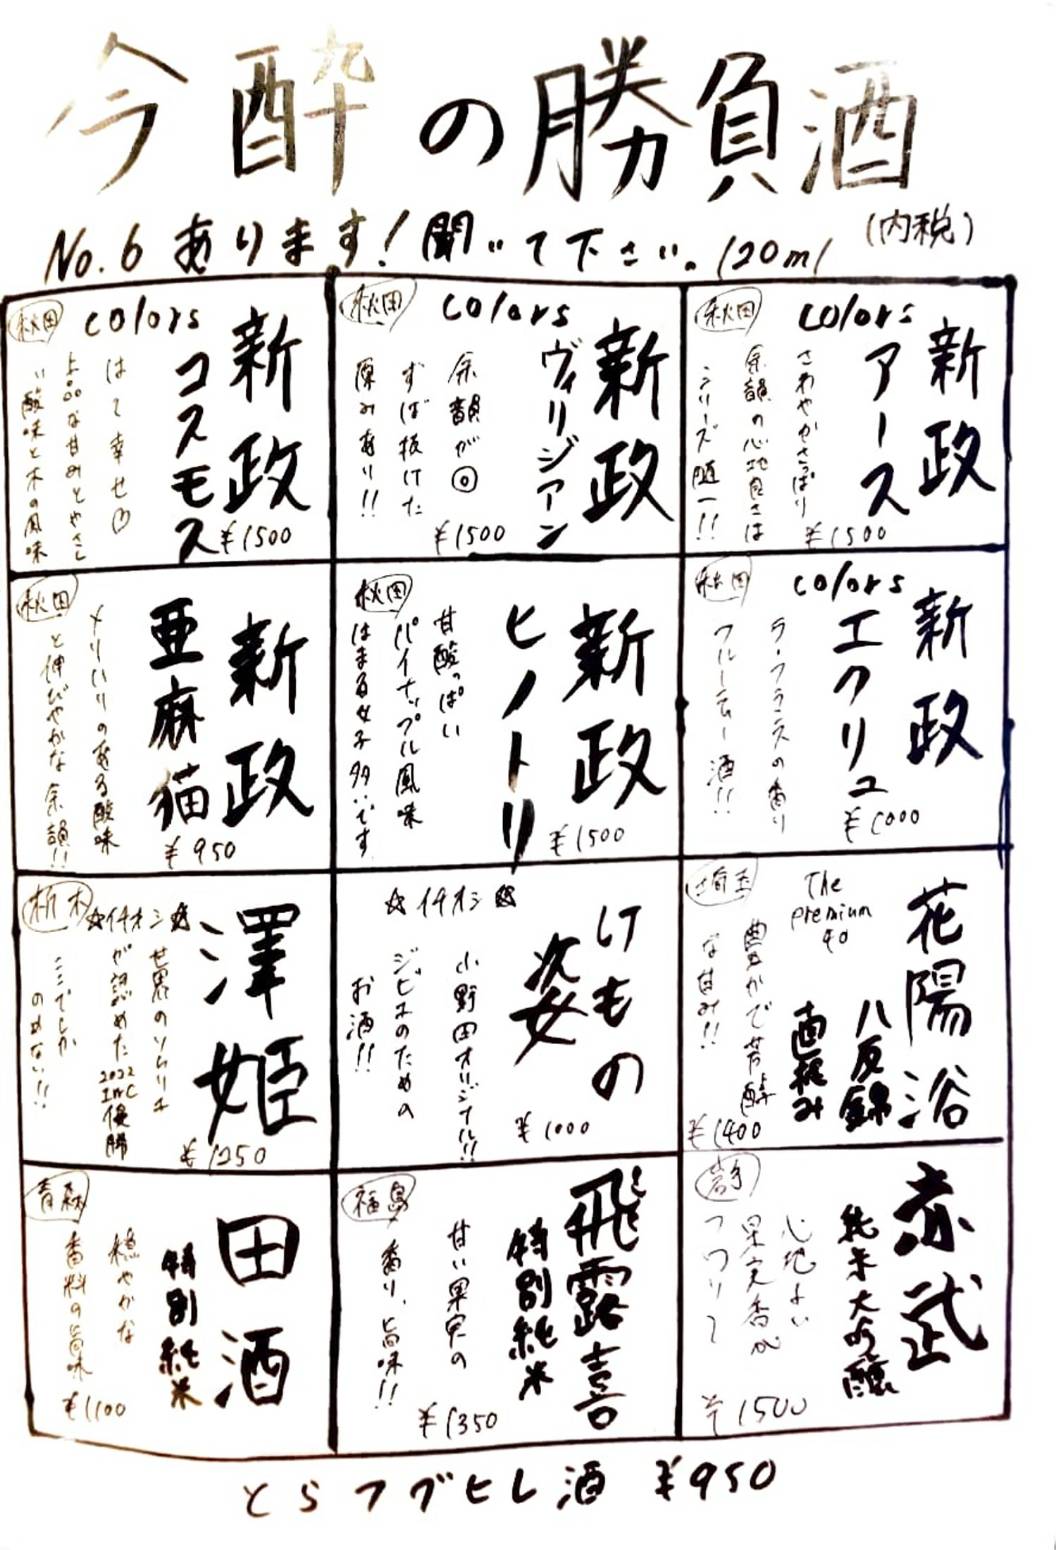 今酔の勝負酒
No.6 あります！聞いて下さい。120ml (内税)
秋田
colors
新政
アース
さわやかさっぱり
余韻の心地良さは
シリーズ随一!!
¥1500
秋田
colors
新政
ヴィリジアン
余韻が◎
ずば抜けた
厚みあり!!
¥1500
秋田
colors
新政
コスモス
はて幸せ
上品な甘みとやさし
い酸味と木の風味
¥1500
秋田
colors
新政
エクリュ
ラ・フランスの香り
フルーティー酒!!
¥1000
秋田
新政
ヒノトリ
甘酸っぱい
パイナップル風味
はまる女子多いです
¥1500
秋田
新政
亜麻猫
メリハリのある酸味
と伸びやかな余韻!!
¥950
埼玉
The
premium
40
花陽浴
八反錦
直汲み
豊かで芳醇
な甘み!!
¥1400
☆イチオシ☆
けもの
姿
小野田オリジナル!!
ジビエのための
お酒!!
¥1000
栃木
☆イチオシ☆
澤姫
世界のソムリエ
が認めた2022IWC優勝
ここでしか
のめない!!
¥1250
岩手
赤武
純米大吟醸
心地よい
果実香が
フワリて
¥1500
福島
飛露喜
特別純米
甘い果実の
香り、旨味!!
¥1350
青森
田酒
特別純米
穏やかな
香料の旨味
¥1100
とらフグヒレ酒 ¥950